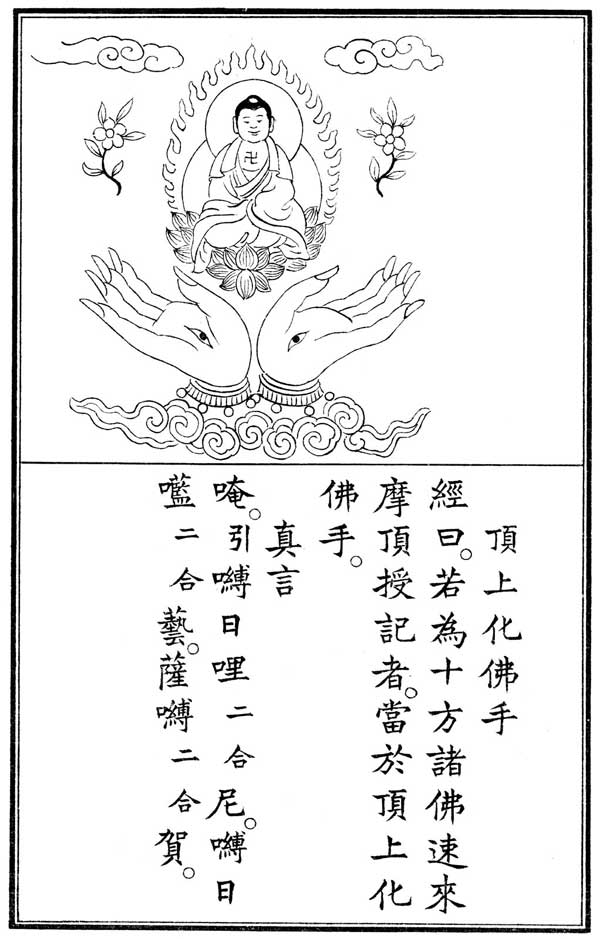 頂上化佛手
經曰。若為十方諸佛速來
摩頂授記者。當於頂上化
佛手。
真言
唵。引嚩日哩二合尼。嚩日
㘕二合藝。薩嚩二合賀。